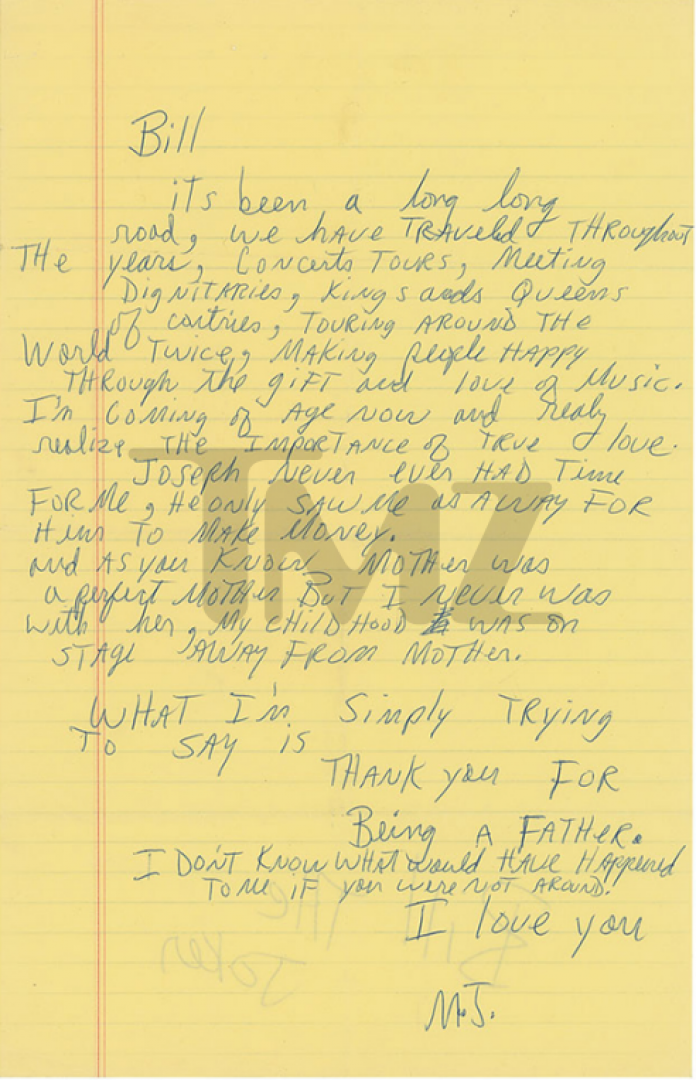 Bill
its been a long long
road, we have TRAveled THROughouT
THe years, Concerts TOURS, Meeting
DigNiTARies, Kings ands Queens
of contries, TOURing AROUND THe
World Twice, MAKing people HAPPY
THROUgh the giFT and love of Music.
I'm Coming of Age NOW and realy
realize THe IMPORTANce of TRUe love.
JOSEPH Never ever HAD Time
FOR Me, He only SAW Me as A WAY FOR
Him TO MAKe Money.
and AS you KNOW MOTHeR was
a perfect MOTHeR BuT I never was
with her, My CHILDHOOD WAS on
STAge AWAY FROM MOTHeR.
WHAT I'm Simply TRying
TO SAY iS
THANK you FOR
Being A FATHeR.
I DON'T KNOW WHAT would HAVe HAppened
TO Me iF you weRe NOT AROUND.
I love you
M.J.
TMZ
Bill THe
JOKeR